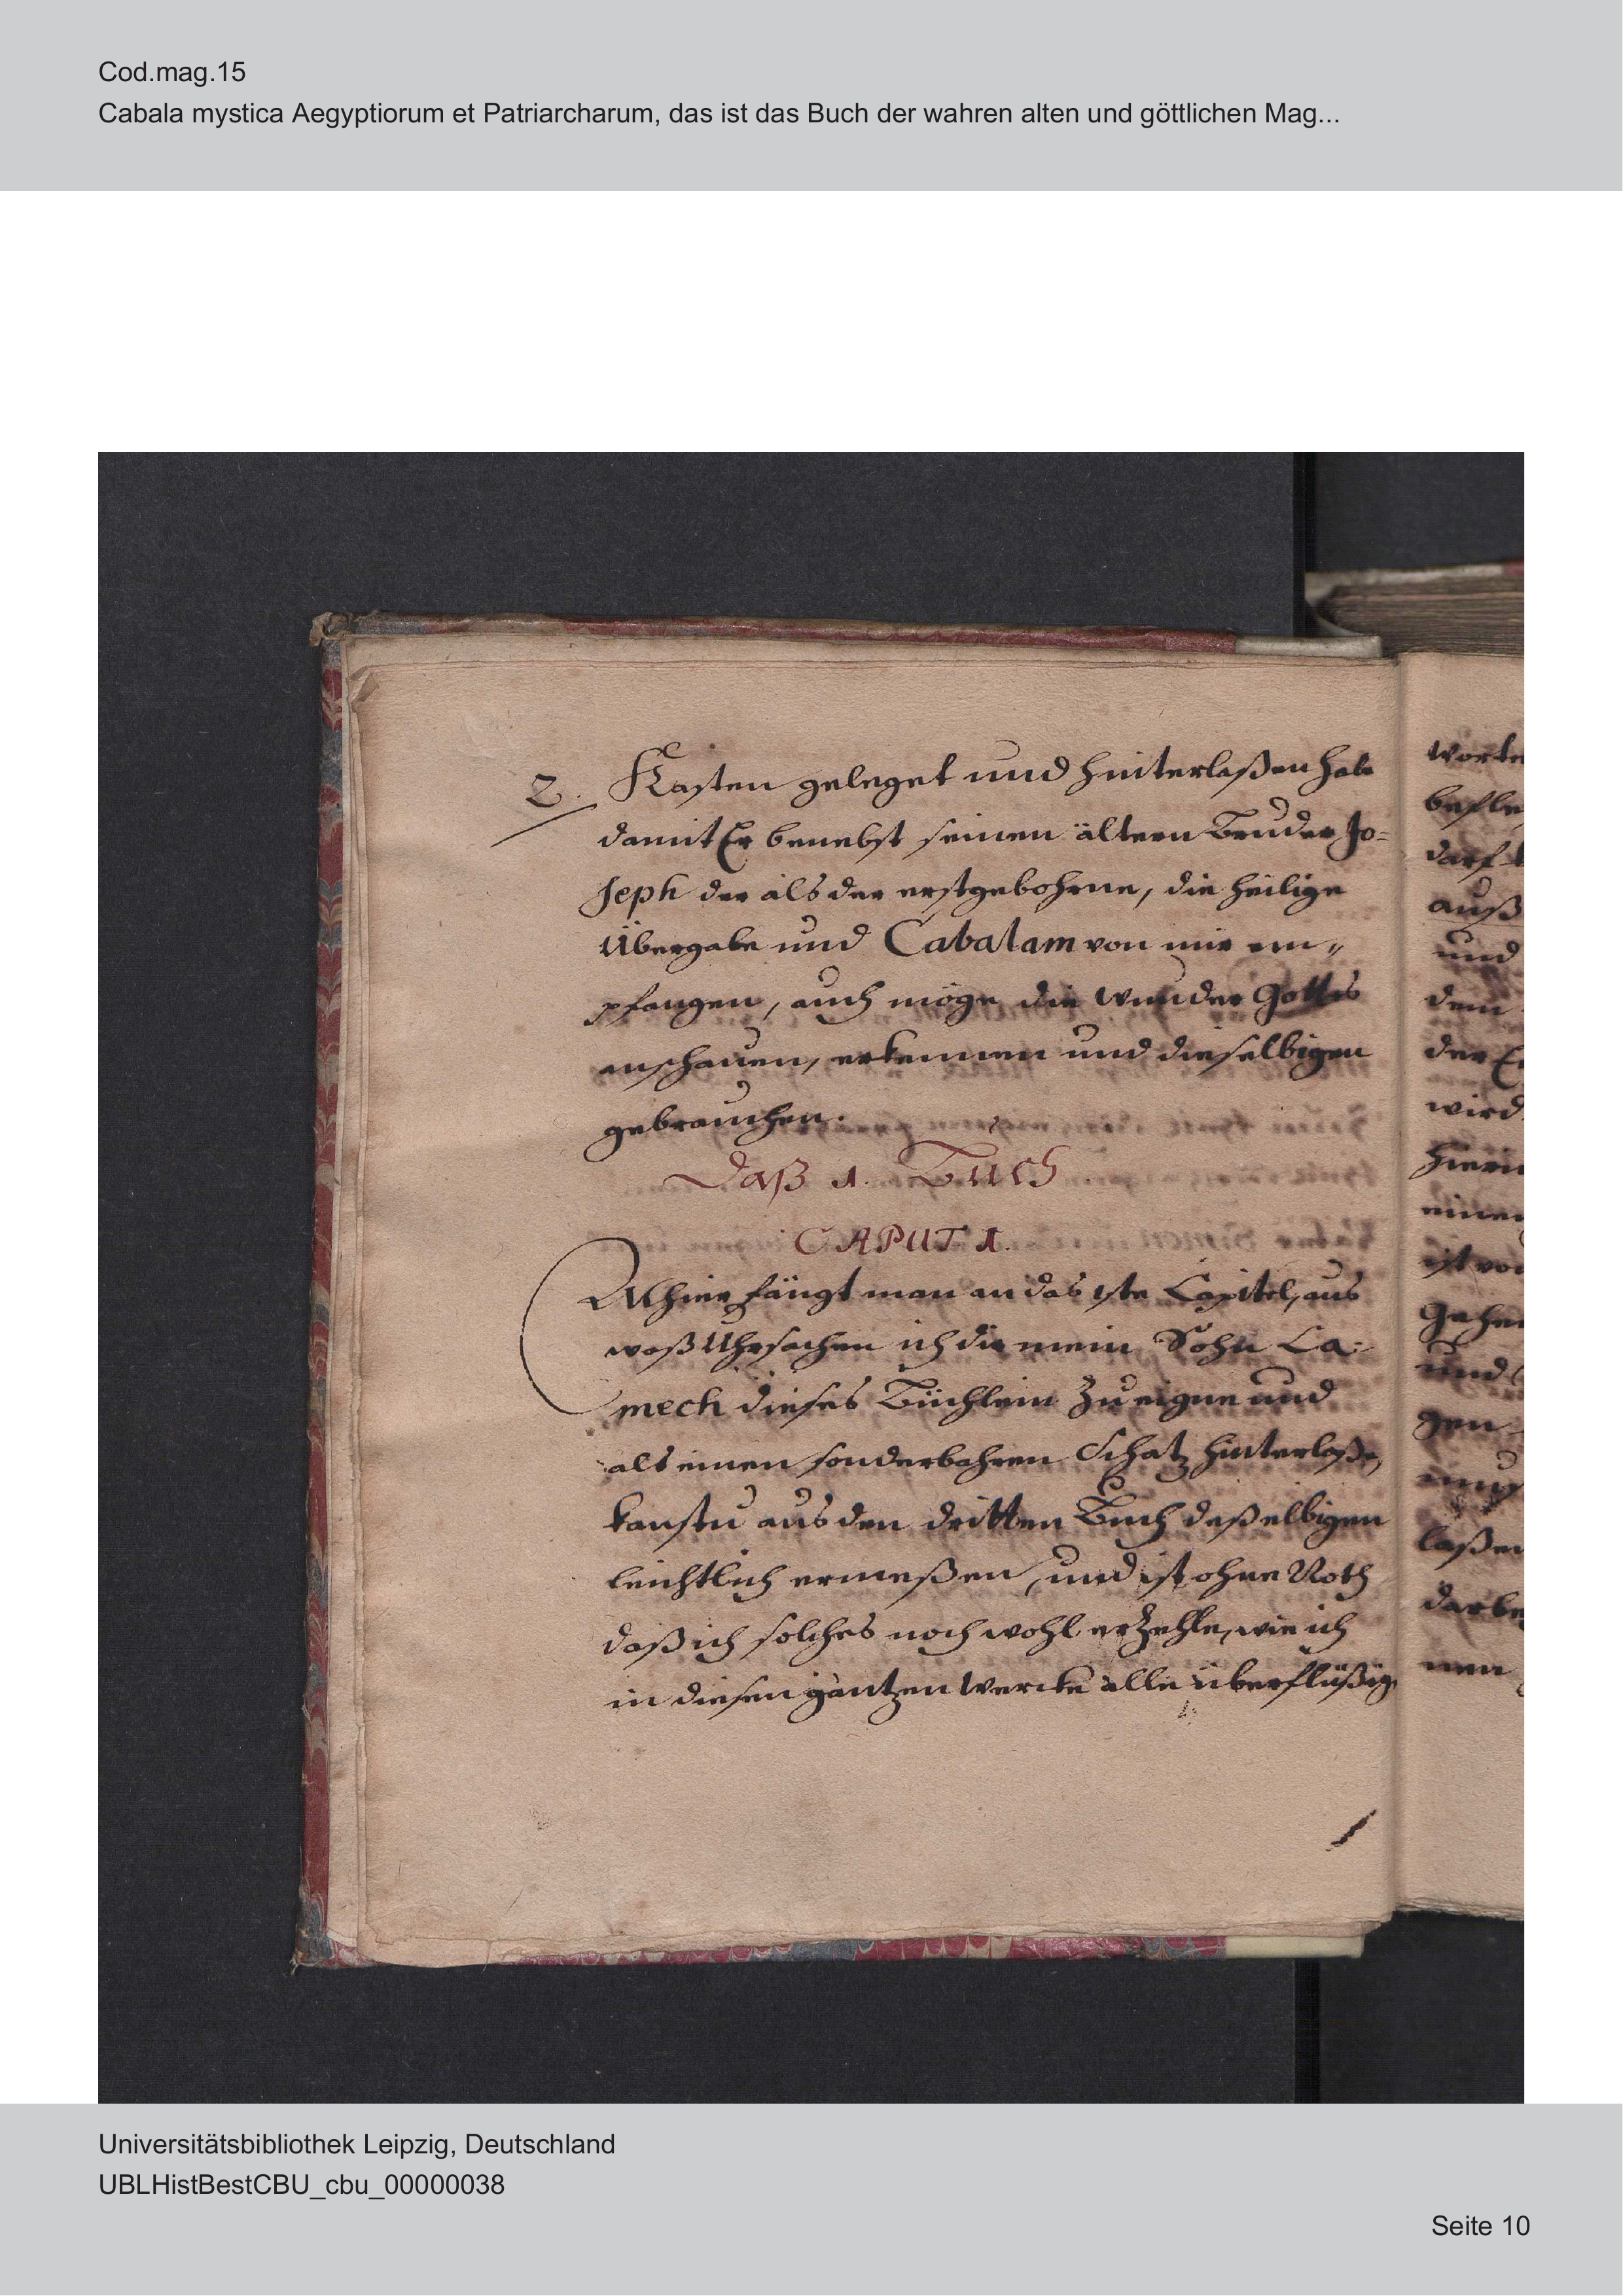 Cod.mag.15
Cabala mystica Aegyptiorum et Patriarcharum, das ist das Buch der wahren alten und göttlichen Mag...
2. Kasten geleget und hinterlaßen habe
damit Er benebst seinen ältern Bruder Jo=
seph der als der erstgebohrne, die heilige
Übergabe und Cabalam von mir em„
pfangen, auch möge die Wunder Gottes
anschauen, erkennen und dieselbigen
gebrauchen.
Daß 1. Buch
CAPUT 1.
Alhier fängt man an das 1ste Capitel, aus
waß Uhrsachen ich dir mein Sohn La=
mech dieses Büchlein Zueigne und
als einen sonderbahren Schatz hinterlaße,
kanstu aus den dritten Buch deßelbigen
leichtlich ermeßen, und ist ohne Noth
daß ich solches noch wohl erzehle, wie ich
in diesen gantzen Wercke alle überflüßig
worte
befle
darf
auß
und
dem
der
wird
hieri
einen
ist vo
Gehei
und
gen
mus
laßen
darbe
nen
Universitätsbibliothek Leipzig, Deutschland
UBLHistBestCBU_cbu_00000038
Seite 10